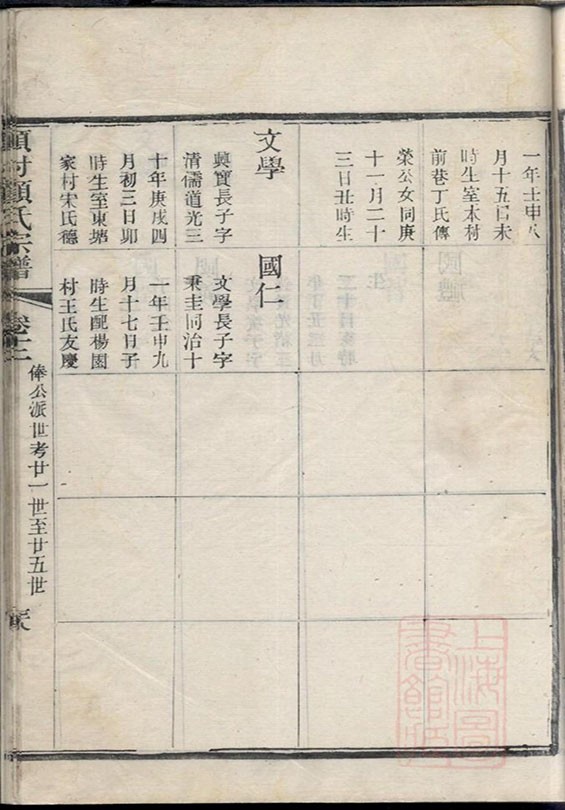 一年壬申八
月十五日未
時生室木村
前巷丁氏傳
榮公女同庚
十一月二十
三日丑時生
文學
興寶長子字
清儒道光三
十年庚戌四
月初三日卯
時生室東塘
家村宋氏德
國仁
文學長子字
秉圭同治十
一年壬申九
月十七日子
時生配楊園
村王氏友慶
村顧氏宗譜
卷十二
俸公派世考廿一世至廿五世
上海圖
書館藏